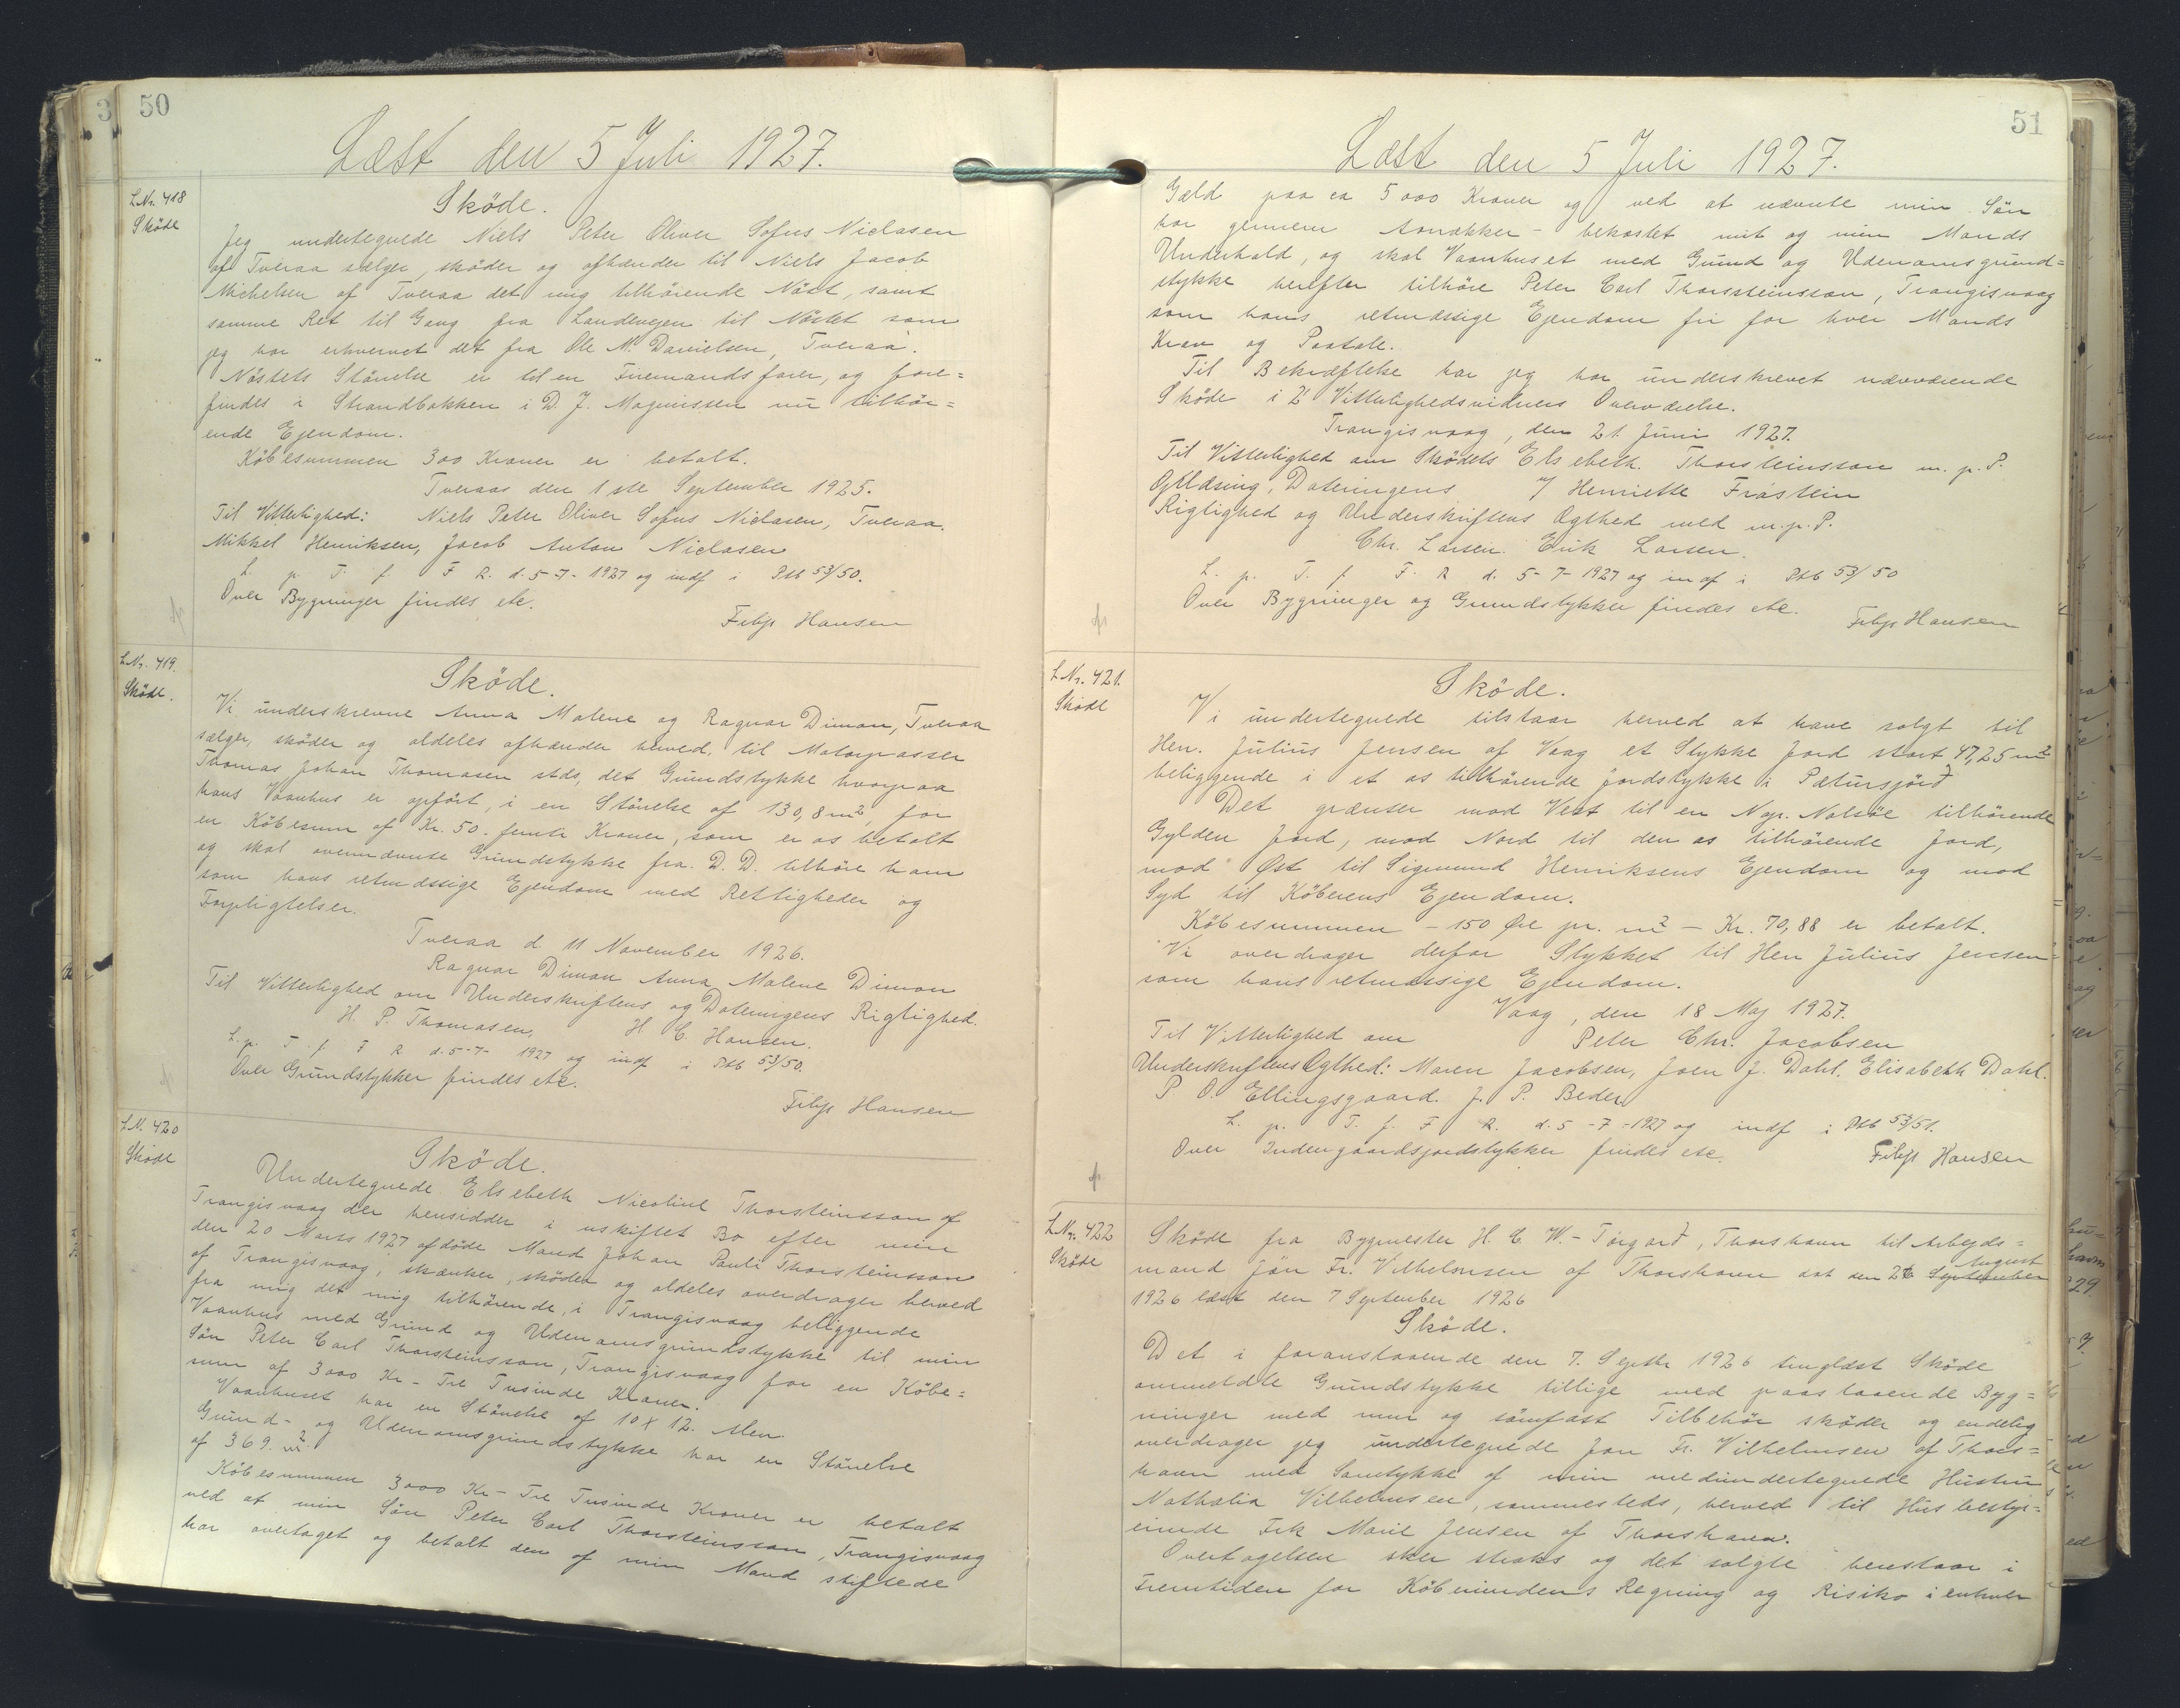 50
Læst den 5 Juli 1927.
L.Nr. 418
Sköde
Sköde.
Jeg undertegnede Niels Peter Oliver Sofus Niclasen
af Tveraa sælger, sköder og afhænder til Niels Jacob
Michelsen af Tveraa det mig tilhörende Nöst, samt
samme Ret til Gang fra Landevejen til Nöstet som
jeg har erhvervet det fra Ole M. Danielsen, Tveraa.
Nöstets Störrelse er til en Firemandsfarer, og fore=
findes i Strandbakken i D. J. Magnussen nu tilhör=
ende Ejendom.
Köbesummen 300 Kroner er betalt.
Tveraa den 1ste September 1925.
Til Vitterlighed: Niels Peter Oliver Sofus Niclasen, Tveraa.
Mikkel Henriksen, Jacob Anton Niclasen
L. p. T. f. F R. d. 5-7-1927 og indf i Ptb 53/50.
Over Bygninger findes etc.
Filip Hansen
L.Nr. 419.
Sköde.
Sköde.
Vi underskrevne Anna Malene og Ragnar Dimon, Tveraa
sælger, sköder og aldeles afhænder herved, til Motorpasser
Thomas Johan Thomasen stds, det Grundstykke hvorpaa
hans Vaanhus er opfört, i en Störrelse af 130,8 m², for
en Köbesum af Kr. 50. femti Kroner, som er os betalt
og skal ovennævnte Grundstykke fra D. D. tilhöre ham
som hans retmæssige Ejendom med Rettigheder og
Forpligtelser.
Tveraa d. 11 November 1926.
Ragnar Dimon Anna Malene Dimon
Til Vitterlighed om Underskriftens og Dateringens Rigtighed.
H. P. Thomasen, H. C. Hansen.
L. p. T. f. F R d. 5-7-1927 og indf i Ptb 53/50.
Over Grundstykker findes etc.
Filip Hansen
L.N. 420
Sköde
Sköde.
Undertegnede Elsebeth Nicoline Thorsteinsson af
Trangisvaag der hensidder i uskiftet Bo efter min
den 20 Marts 1927 afdöde Mand Johan Pauli Thorsteinsson
af Trangisvaag, skænker, sköder og aldeles overdrager herved
fra mig det mig tilhörende, i Trangisvaag beliggende
Vaanhus med Grund og Udenomsgrundstykke til min
Sön Peter Carl Thorsteinsson, Trangisvaag for en Köbe=
sum af 3000 Kr - Tre Tusinde Kroner.
Vaanhuset har en Störrelse af 10 X 12. Alen.
Grund- og Udenomsgrundstykke har en Störrelse
af 369. m².
Köbesummen 3000 Kr - Tre Tusinde Kroner er betalt
ved at min Sön Peter Carl Thorsteinsson, Trangisvaag
har overtaget og betalt den af min Mand stiftede
51
Læst den 5 Juli 1927.
Gæld paa ca 5000 Kroner og ved at nævnte min Sön
har gennem Aarrækker - bekostet mit og min Mands
Underhold, og skal Vaanhuset med Grund og Udenomsgrund=
stykke herefter tilhöre Peter Carl Thorsteinsson, Trangisvaag
som hans retmæssige Ejendom fri for hver Mands
Krav og Paatale.
Til Bekræftelse har jeg har underskrevet nærværende
Sköde i 2 Vitterlighedsvidners Overværelse.
Trangisvaag, den 21. Juni 1927.
Til Vitterlighed om Sködets Elsebeth. Thorsteinsson m. p. P.
Oplæsning, Dateringens / Henriette Fråstein
Rigtighed og Underskriftens Ægthed med m. p. P.
Chr. Larsen. Erik Larsen.
L. p. T. f. F. R d. 5-7-1927 og indf i Ptb 53/50
Over Bygninger og Grundstykker findes etc.
Filip Hansen
L.Nr. 421.
Sköde
Sköde.
Vi undertegnede tilstaar herved at have solgt til
Herr. Julius Jensen af Vaag et Stykke Jord stort 47,25 m²
beliggende i et os tilhörende Jordstykke i Pætursjörð
Det grænser mod Vest til en Napr. Nolsöe tilhörende
Gylden Jord, mod Nord til den os tilhörende Jord,
mod Øst til Sigmund Henriksens Ejendom og mod
Syd til Köberens Ejendom.
Köbesummen - 150 Øre pr. m² - Kr. 70,88 er betalt.
Vi overdrager derfor Stykket til Herr Julius Jensen
som hans retmæssige Ejendom.
Vaag, den 18 Maj 1927.
Til Vitterlighed om Peter Chr. Jacobsen
Underskriftens Ægthed: Maren Jacobsen, Joen J. Dahl. Elisabeth Dahl.
P O. Ellingsgaard. J. P. Beder
L. p. T. f. F R. d. 5-7-1927 og indf i Ptb 53/51.
Over Indengaardsjordstykker findes etc.
Filip Hansen
L.Nr. 422
Sköde
Sköde fra Bygmester H. C. W. - Törgarð, Thorshavn til Arbejds=
mand Jön Fr. Vilhelmsen af Thorshavn dat den 26 September August
1926 læst den 7 September 1926
Sköde.
Det i foranstaaende den 7. Septbr 1926 tinglæst Sköde
ommeldte Grundstykke tillige med paastaaende Byg=
ninger med mur og sömfast Tilbehör sköder og endelig
overdrager jeg undertegnede Jön Fr. Vilhelmsen af Thors=
havn med Samtykke af min medundertegnede Hustru
Nathalia Vilhelmsen, sammesteds, herved til Husbestyr=
erinde Frk Marie Jensen af Thorshavn.
Overtagelsen sker straks og det solgte henstaar i
Fremtiden for Köberindens Regning og Risiko i enhver